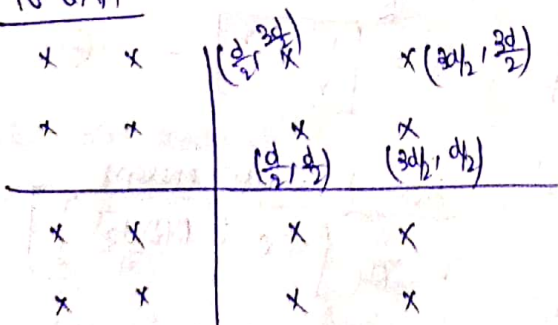 x x (d/2, 3d/2) x x (3d/2, 3d/2)
x x x x
(d/2, d/2) (3d/2, d/2)
x x x x
x x x x